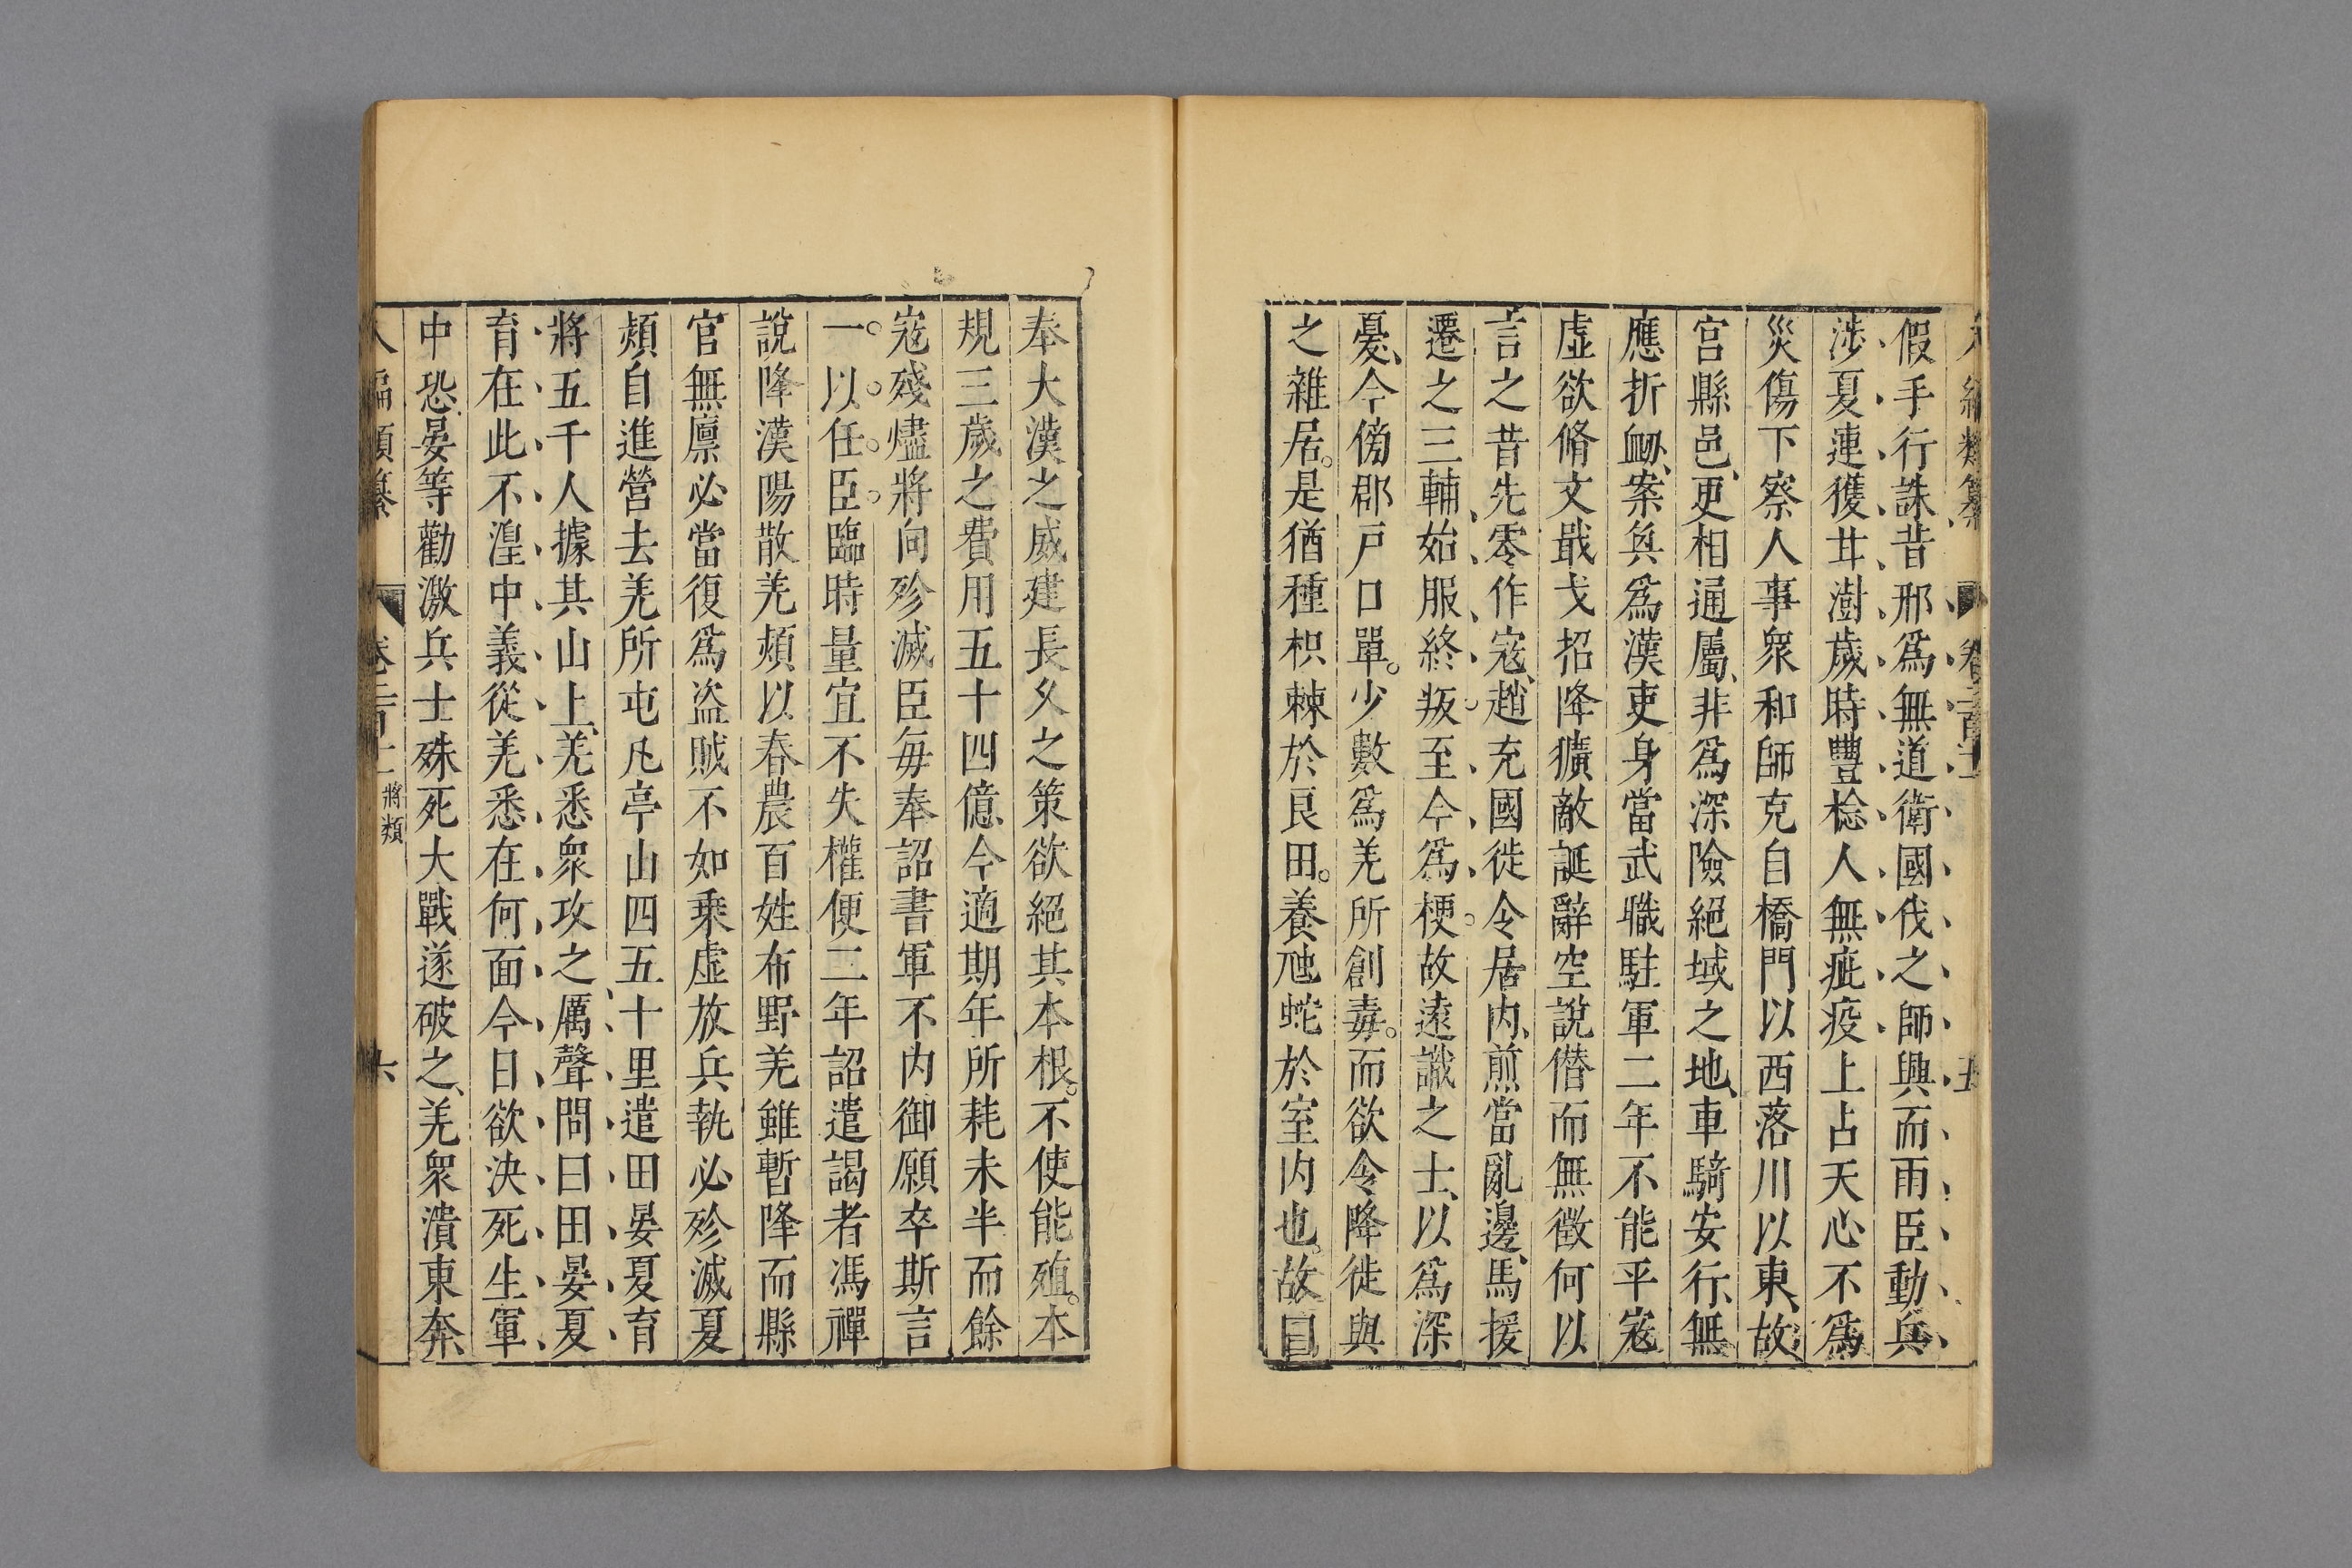 假手行誅昔邢爲無道衛國伐之師興而雨臣動兵
涉夏連獲甘澍歲時豐稔人無疵疫上占天心不爲
災傷下察人事衆和師克自橋門以西落川以東故
宮縣邑更相通屬非爲深險絕域之地車騎安行無
應折衂案奐爲漢吏身當武職駐軍二年不能平寇
虛欲脩文戢戈招降獷敵誕辭空說僣而無徵何以
言之昔先零作寇趙充國徙令居内煎當亂邊馬援
遷之三輔始服終叛至今爲梗故遠識之士以爲深
憂今傍郡戸口單少數爲羌所創毒而欲令降徙與
之雜居是猶種枳棘於良田養虺蛇於室内也故臣
奉大漢之威建長久之策欲絕其本根不使能殖本
規三歲之費用五十四億今適期年所耗未半而餘
寇殘燼將向殄滅臣每奉詔書軍不内御願卒斯言
一以任臣臨時量宜不失權便二年詔遣謁者馮禪
說降漢陽散羌熲以春農百姓布野羌雖暫降而縣
官無廪必當復爲盗賊不如乗虛放兵埶必殄滅夏
熲自進營去羌所屯凡亭山四五十里遣田晏夏育
將五千人據其山上羌悉衆攻之厲聲問曰田晏夏
育在此不湟中義從羌悉在何面今日欲決死生軍
中恐晏等勸激兵士殊死大戰遂破之羌衆潰東奔
八編類纂 卷二百十二 將類 六